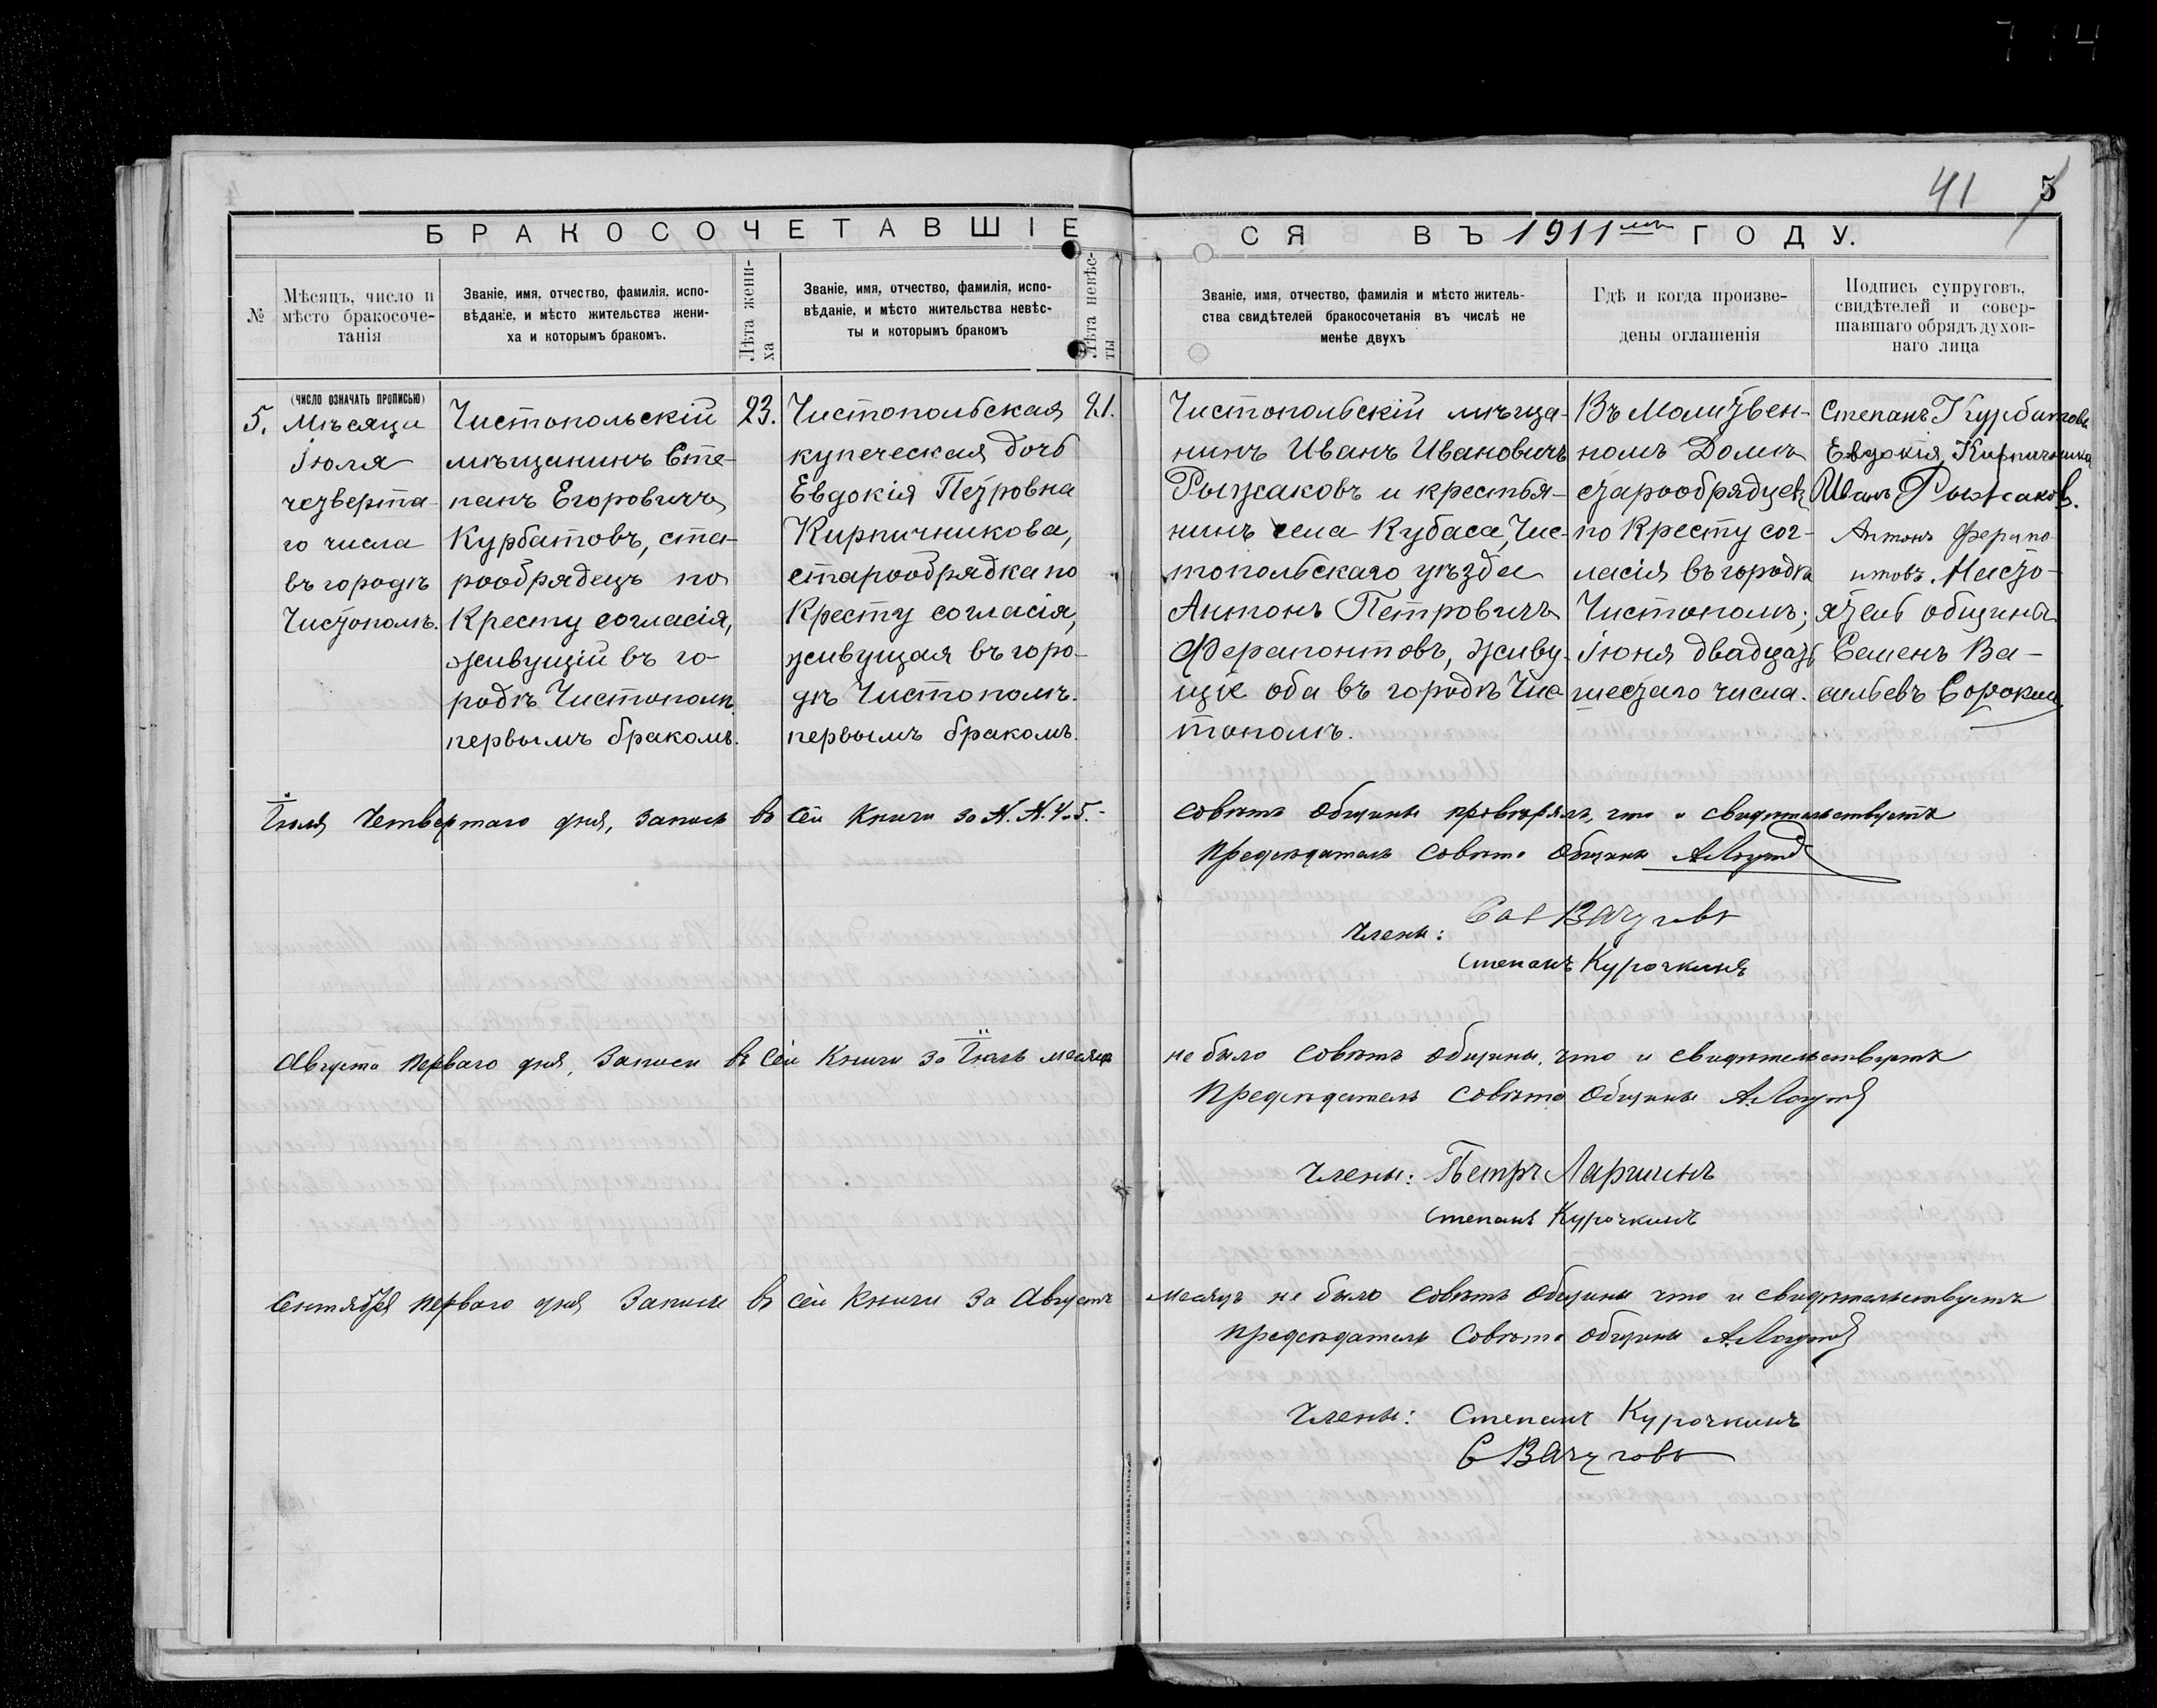 714
41 5
БРАКОСОЧЕТАВШІЕ
СЯ ВЪ 1911мъ ГОДУ.
№
Мѣсяцъ, число и
мѣсто бракосоче-
танія
Званіе, имя, отчество, фамилія, испо-
вѣданіе, и мѣсто жительства жени-
ха и которымъ бракомъ.
Лѣта жени-
ха
Званіе, имя, отчество, фамилія, испо-
вѣданіе, и мѣсто жительства невѣс-
ты и которымъ бракомъ
Лѣта невѣс-
ты
Званіе, имя, отчество, фамилія и мѣсто житель-
ства свидѣтелей бракосочетанія въ числѣ не
менѣе двухъ
Гдѣ и когда произве-
дены оглашенія
Подпись супруговъ,
свидѣтелей и совер-
шавшаго обрядъ духов-
наго лица
(ЧИСЛО ОЗНАЧАТЬ ПРОПИСЬЮ)
5.
Мѣсяца
Іюля
четверта-
го числа
въ городѣ
Чистополѣ.
Чистопольскій
мѣщанинъ Сте-
панъ Егоровичъ
Курбатовъ, ста-
рообрядецъ по
Кресту согласія,
живущій въ го-
родѣ Чистополѣ.
первымъ бракомъ.
23.
Чистопольская
купеческая дочь
Евдокія Петровна
Кирпичникова,
старообрядка по
Кресту согласія,
живущая въ горо-
дѣ Чистополѣ.
первымъ бракомъ.
21.
Чистопольскій мѣща-
нинъ Иванъ Ивановичъ
Рыжаковъ и крестья-
нинъ села Кубаса, Чис-
топольскаго уѣзда
Антонъ Петровичъ
Ферапонтовъ, живу-
щіе оба въ городѣ Чис
тополѣ.
Въ Молитвен-
номъ Домѣ
старообрядцевъ
по Кресту сог-
ласія въ городѣ
Чистополѣ;
Іюня двадцать
шестаго числа.
Степанъ Курбатовъ
Евдокія Кирпичникова
Иванъ Рыжаковъ.
Антонъ Ферапо
нтовъ. Насто-
ятель общины
Семенъ Ва-
сильевъ Сорокин
Іюля Четвертаго дня, записи въ сей книги за N. N. 4 и 5.-
совѣтъ общины провѣрялъ, что и свидѣтельствуетъ
Предсѣдатель совѣта общины
Члены:
Степанъ Курочкинъ
Августа перваго дня, записи въ сей книги за Іюль месяцъ
не было совѣтъ общины, что и свидѣтельствуетъ
Предсѣдатель совѣта общины
Члены: Петръ Ларшинъ
Степанъ Курочкинъ
Сентября перваго дня записи въ сей книги за Августъ
месяцъ не было совѣтъ общины что и свидѣтельствуетъ
Предсѣдатель совѣта общины
Члены: Степанъ Курочкинъ